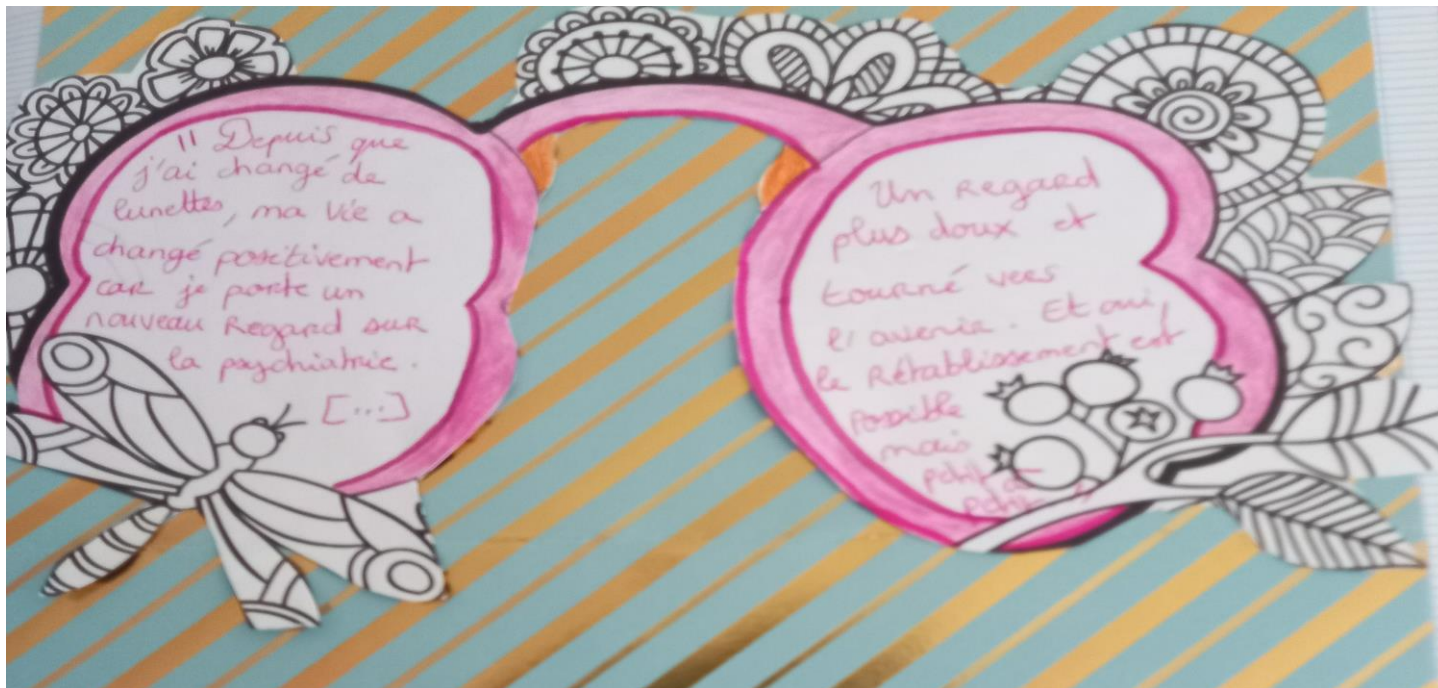 " Depuis que
j'ai changé de
lunettes, ma vie a
changé positivement
car je porte un
nouveau Regard sur
la psychiatrie.
[...]
Un Regard
plus doux et
tourné vers
l'avenir. Et oui,
le Rétablissement est
possible
mais
petit à
petit "